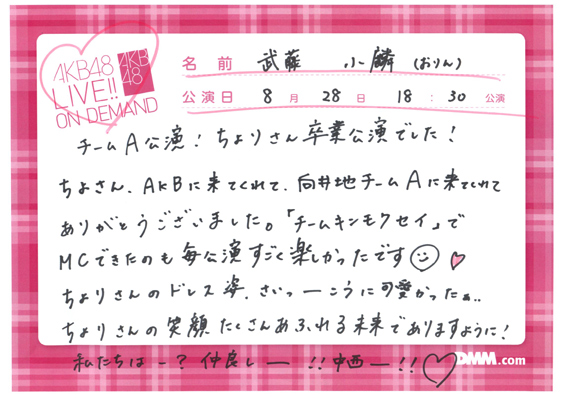 AKB48
LIVE!!
ON DEMAND
AKB
48
名前 武藤 小麟 (おりん)
公演日 8月28日 18:30 公演
チームA公演!ちよりさん卒業公演でした!
ちよさん、AKBに来てくれて、向井地チームAに来てくれて
ありがとうございました。「チームキンモクセイ」で
MCできたのも毎公演すごく楽しかったです
ちよりさんのドレス姿、さいっーこうに可愛かったぁ..
ちよりさんの笑顔たくさんあふれる未来でありますように!
私たちはー?仲良しー!!中西ー!!
DMM.com